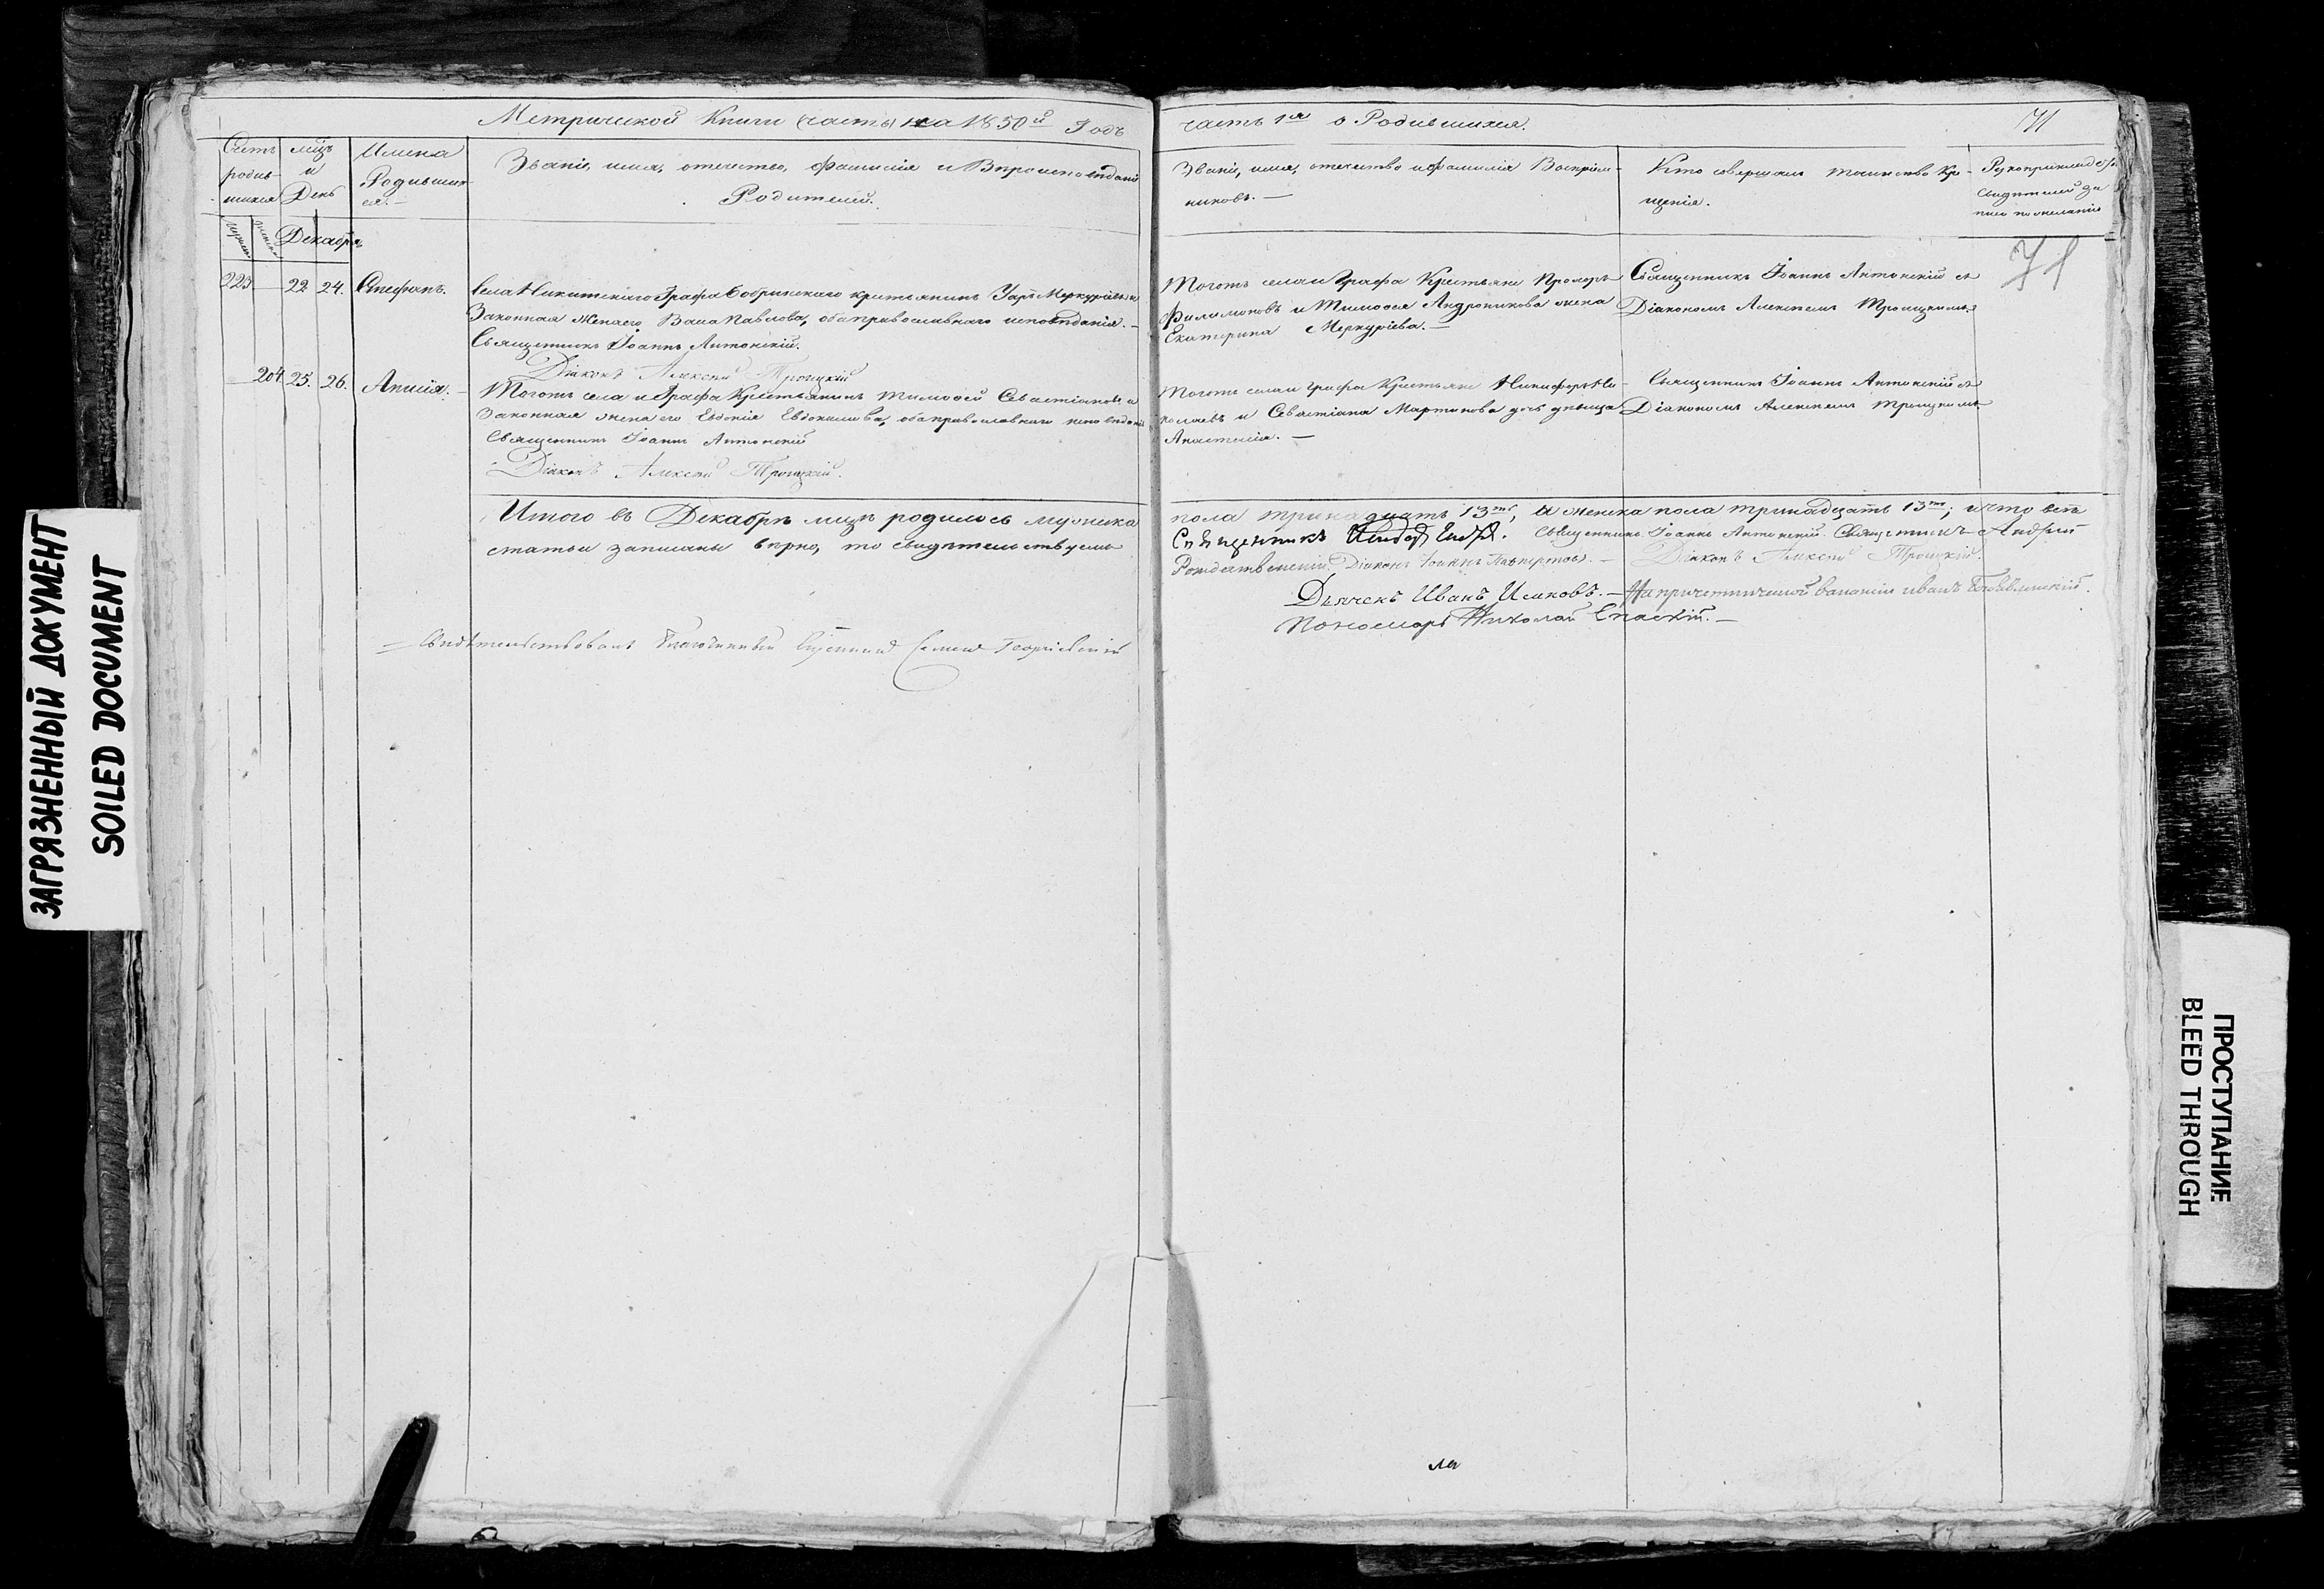 Метрической Книги часть 1 на 1850й Годъ
Счетъ родив-шихся
мцъ и День
Имена Родивших-ся.
Званіе, имя, отечество, фамилія и Вѣроисповѣданіе
Родителей.
Декабрь
223 — 22 24. Стефанъ.
Села Никитскаго Графа Бобринскаго крестьянинъ Уаръ Меркурьевъ и
Законная жена его Павлова, оба православнаго исповѣданія. —
Священникъ Іоаннъ Антонскій.
Діаконъ Алексѣй Троицкій
204 25. 26. Анисія. —
Тогожъ села и Графа Крестьянинъ Тимофей Севастіановъ и
Законная жена его Евдокія Евдокимова, оба православнаго исповѣданія
Священникъ Іоаннъ Антонскій
Діаконъ Алексѣй Троицкій.
Итого въ Декабрѣ мцѣ родилось мужска
статьи записаны вѣрно, то свидѣтельствуемъ
Свидѣтельствовалъ Благочинный Священникъ Семенъ Георгіевскій
часть 1я о Родившихся.
71
Званіе, имя, отечество и фамилія Воспріем-
никовъ. —
Кто совершалъ таинство Кре-
щенія.
Рукоприкладс
свидѣтелей за
писи по желанію
71
Тогожъ села и Графа Крестьяне Прохоръ
Филимоновъ и Тимофея Андроникова жена
Екатерина Меркуріева. —
Священникъ Іоаннъ Антонскій съ
Діакономъ Алексѣемъ Троицкимъ.
Тогожъ села и Графа Крестьяне Никифоръ Ни-
колаевъ и Севастіана Мартинова дочь дѣвица
Анастасія. —
Священникъ Іоаннъ Антонскій съ
Діакономъ Алексѣемъ Троицкимъ
пола тринадцать 13ть, и женска пола тринадцать 13ть; и что всѣ
Священникъ Священникъ Іоаннъ Антонскій. Священникъ Андрей
Рождественскій. Діаконъ Іоаннъ Діаконъ Алексѣй Троицкій.
Дьячекъ Иванъ Исаковъ. — На причетнической вакансіи Иванъ
Пономарь Николай Спаскій. —
ЗАГРЯЗНЕННЫЙ ДОКУМЕНТ
SOILED DOCUMENT
ПРОСТУПАНИЕ
BLEED THROUGH